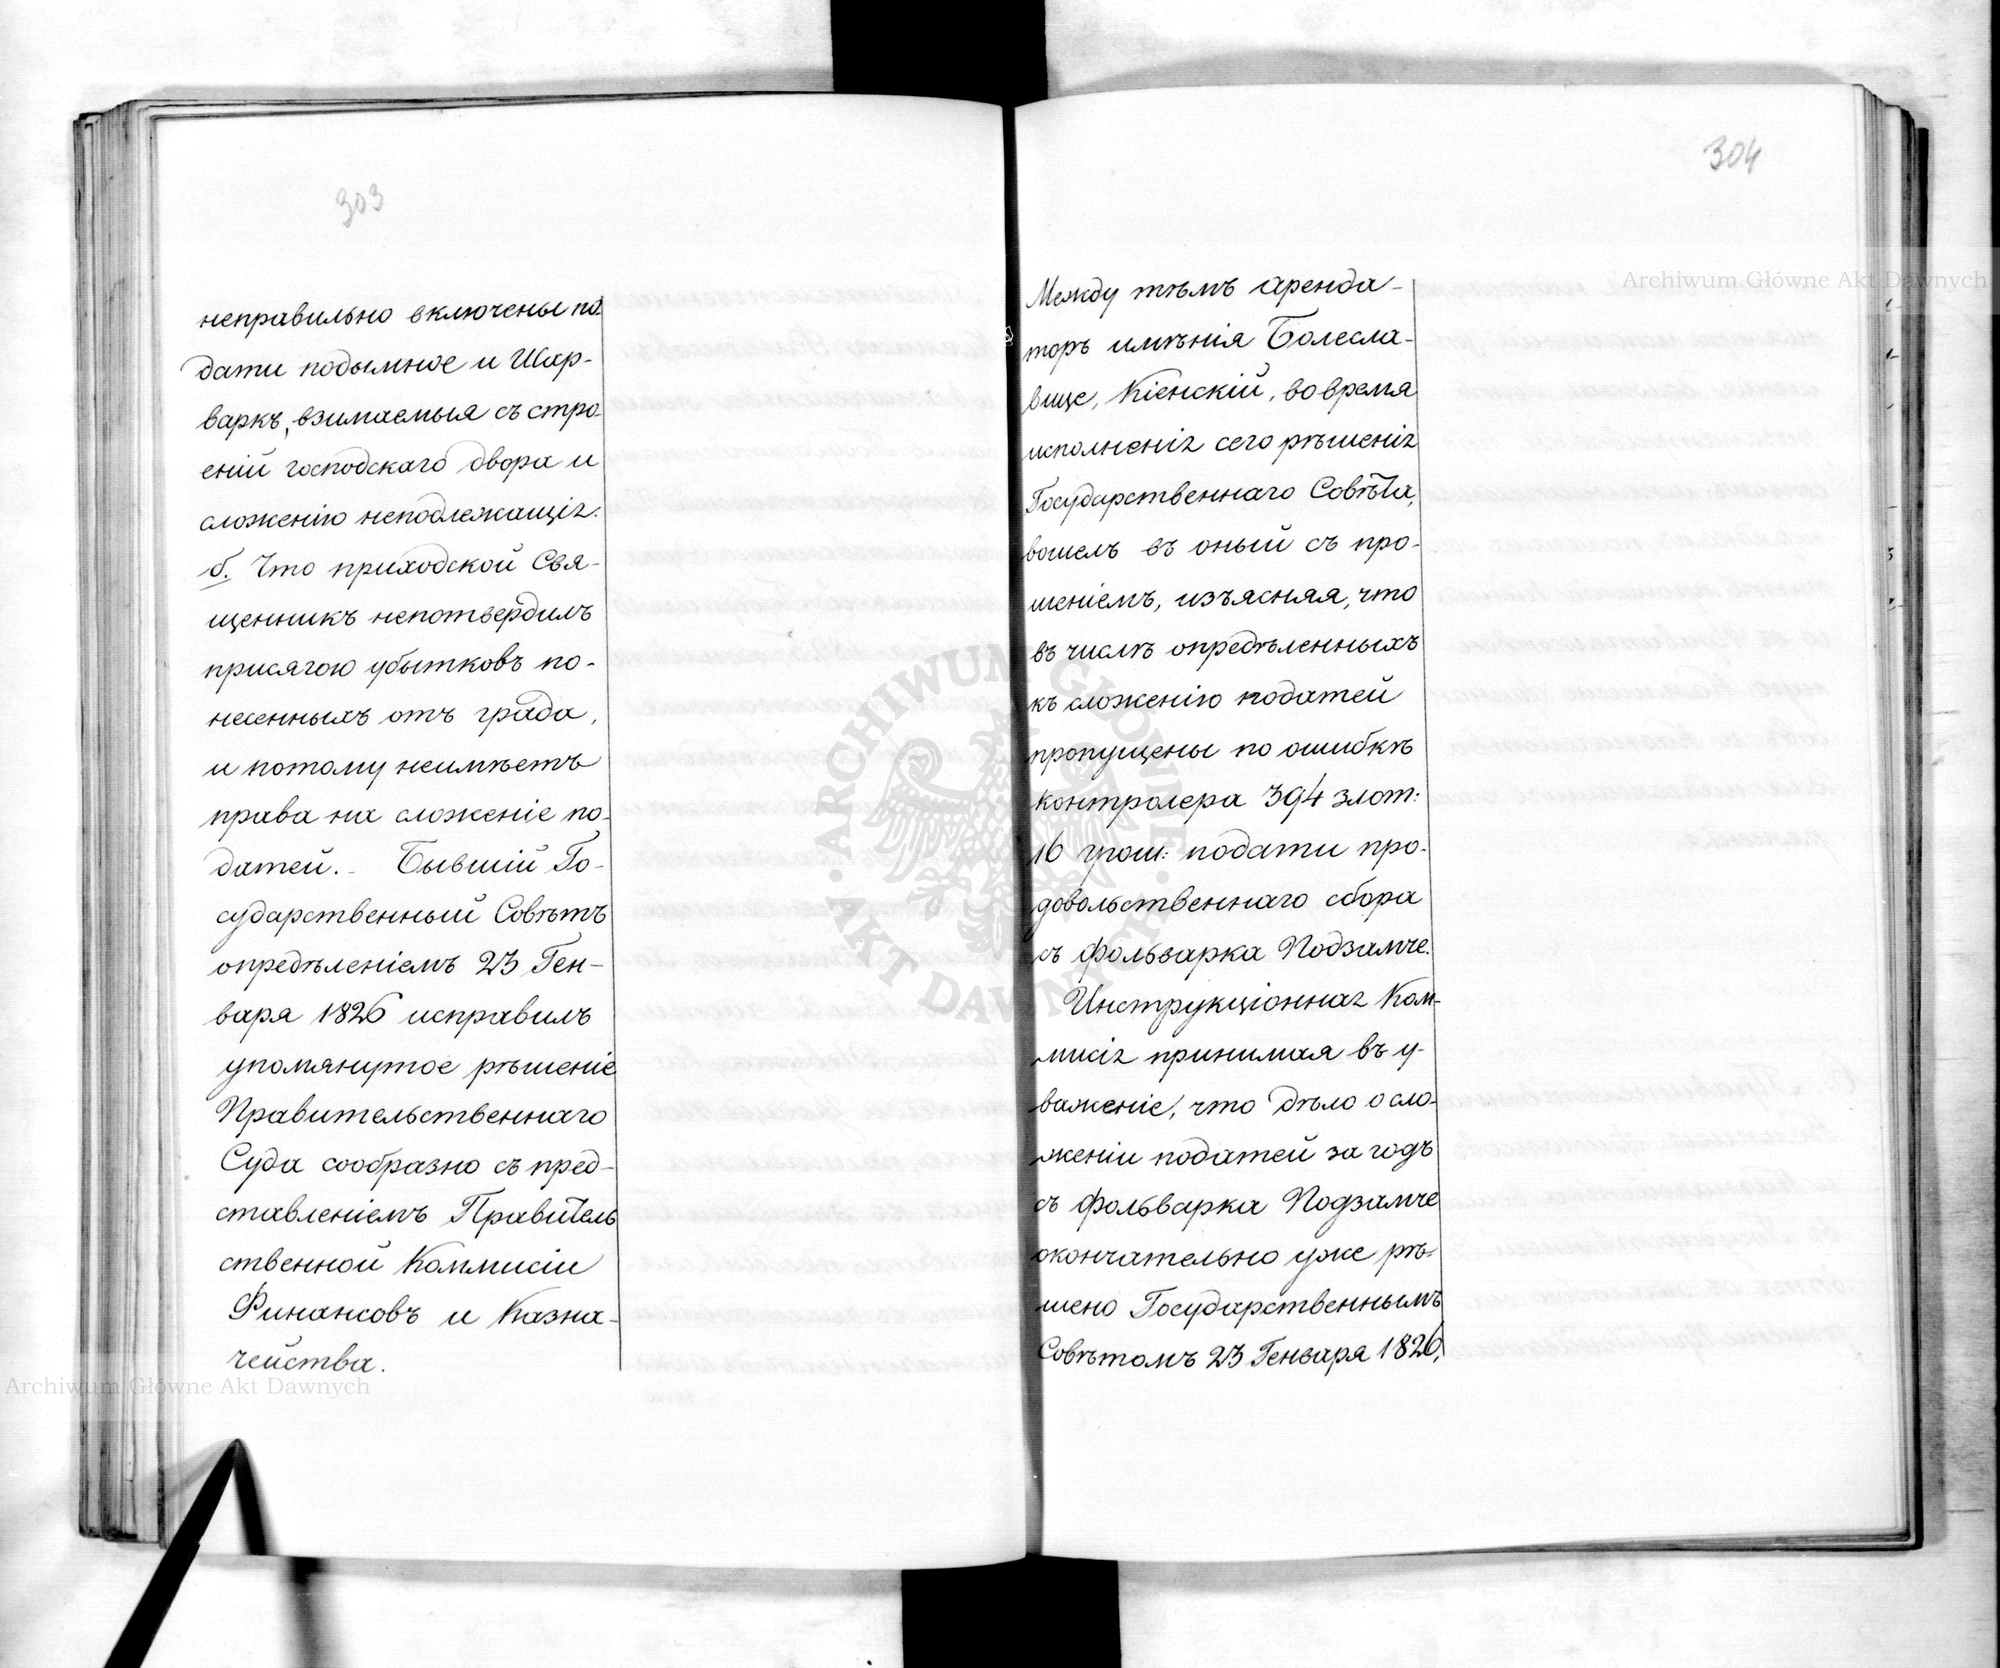 303
неправильно включены по-
дати подымное и Шар-
варкъ, взимаемыя съ стро-
еній господскаго двора и
сложенію неподлежащія.
б. Что приходской Свя-
щенникъ непотвердилъ
присягою убытковъ по-
несенныхъ отъ града,
и потому неимѣетъ
права на сложеніе по-
датей. - Бывшій Го-
сударственный Совѣтъ
опредѣленіемъ 23 Ген-
варя 1826 исправилъ
упомянутое рѣшеніе
Правительственнаго
Суда сообразно съ пред-
ставленіемъ Правитель
ственной Коммисіи
Финансовъ и Казна-
чейства.
304
Между тѣмъ аренда-
торъ имѣнія Болесла-
вице, Кіенскій, во время
исполненія сего рѣшенія
Государственнаго Совѣта,
вошелъ въ оный съ про-
шеніемъ, изъясняя, что
въ числѣ опредѣленныхъ
къ сложенію податей
пропущены по ошибкѣ
контролера 394 злот:
16 грош: подати про-
довольственнаго сбора
съ фольварка Подзамче.
Инструкціонная Ком-
мисія принимая въ у-
важеніе, что дѣло о сло-
женіи податей за годъ
съ фольварка Подзамче
окончательно уже рѣ-
шено Государственнымъ
Совѣтомъ 23 Генваря 1826,
Archiwum Główne Akt Dawnych
Archiwum Główne Akt Dawnych
ARCHIWUM GŁÓWNE
AKT DAWNYCH